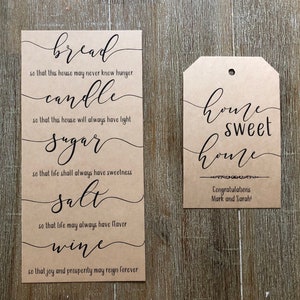 bread
so that this house may never know hunger
candle
so that this house will always have light
sugar
so that life shall always have sweetness
salt
so that life may always have flavor
wine
so that joy and prosperity may reign forever
home
sweet
home
Congratulations
Mark and Sarah!